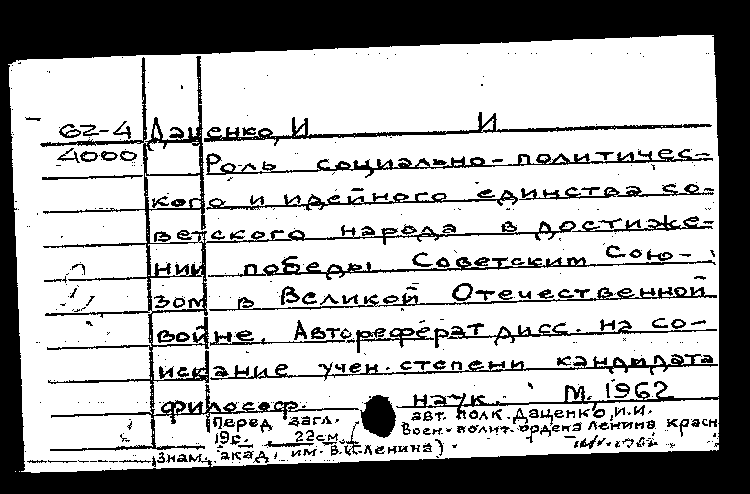 62-4 Даценко, И И
4000 Роль социально-политичес-
кого и идейного единства со-
ветского народа в достиже-
нии победы Советским Сою-
зом в Великой Отечественной
войне. Автореферат дисс. на со-
искание учен. степени кандидата
философ. наук. М. 1962
Перед загл. авт. полк. Даценко, И.И.
19с. 22см. (Воен-полит. ордена Ленина красн
знам. акад. им. В.И.Ленина).